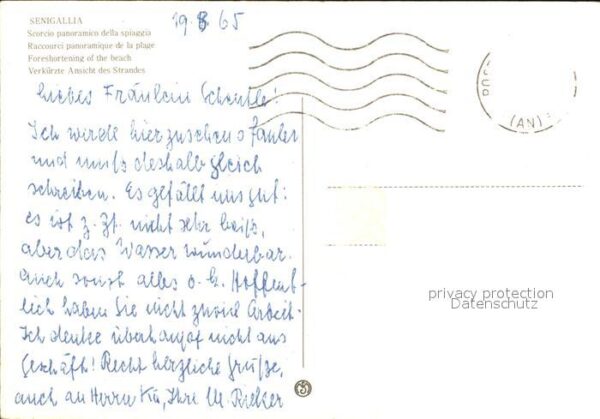 SENIGALLIA
Scorcio panoramico della spiaggia
Raccourci panoramique de la plage
Foreshortening of the beach
Verkürzte Ansicht des Strandes
19.8.65
Liebes Fräulein
Ich werde hier zusehens fauler
und muß deshalb gleich
schreiben. Es gefällt uns gut:
es ist z. Zt. nicht sehr heiß,
aber das Wasser wunderbar.
Auch sonst alles o.k. Hoffent-
lich haben Sie nicht zuviel Arbeit.
Ich denke überhaupt nicht ans
Geschäft! Recht herzliche Grüße,
auch an Herrn Ihre M.
(AN)
privacy protection
Datenschutz